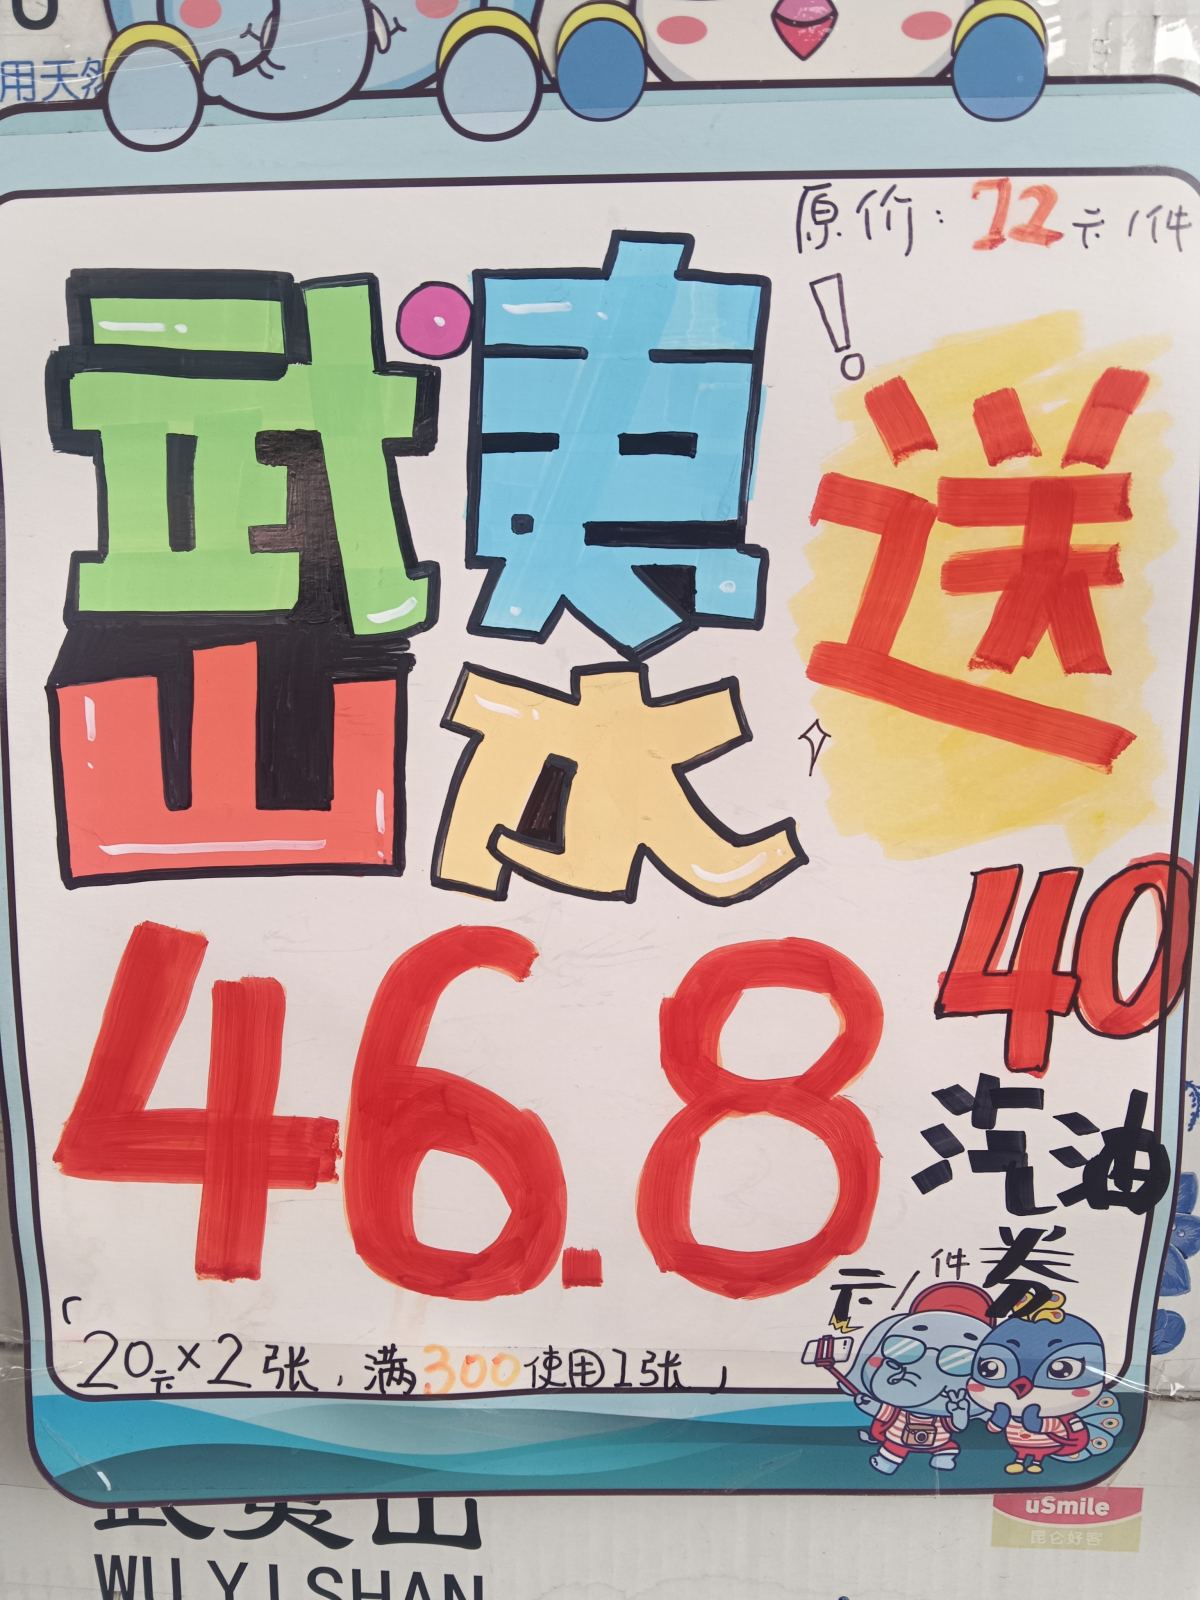 用天然
原价：72元/件
武夷
山水
！
送
40
汽油
券
46.8
元/件
「20元×2张，满300使用1张」
武夷山
WUYISHAN
uSmile
昆仑好客